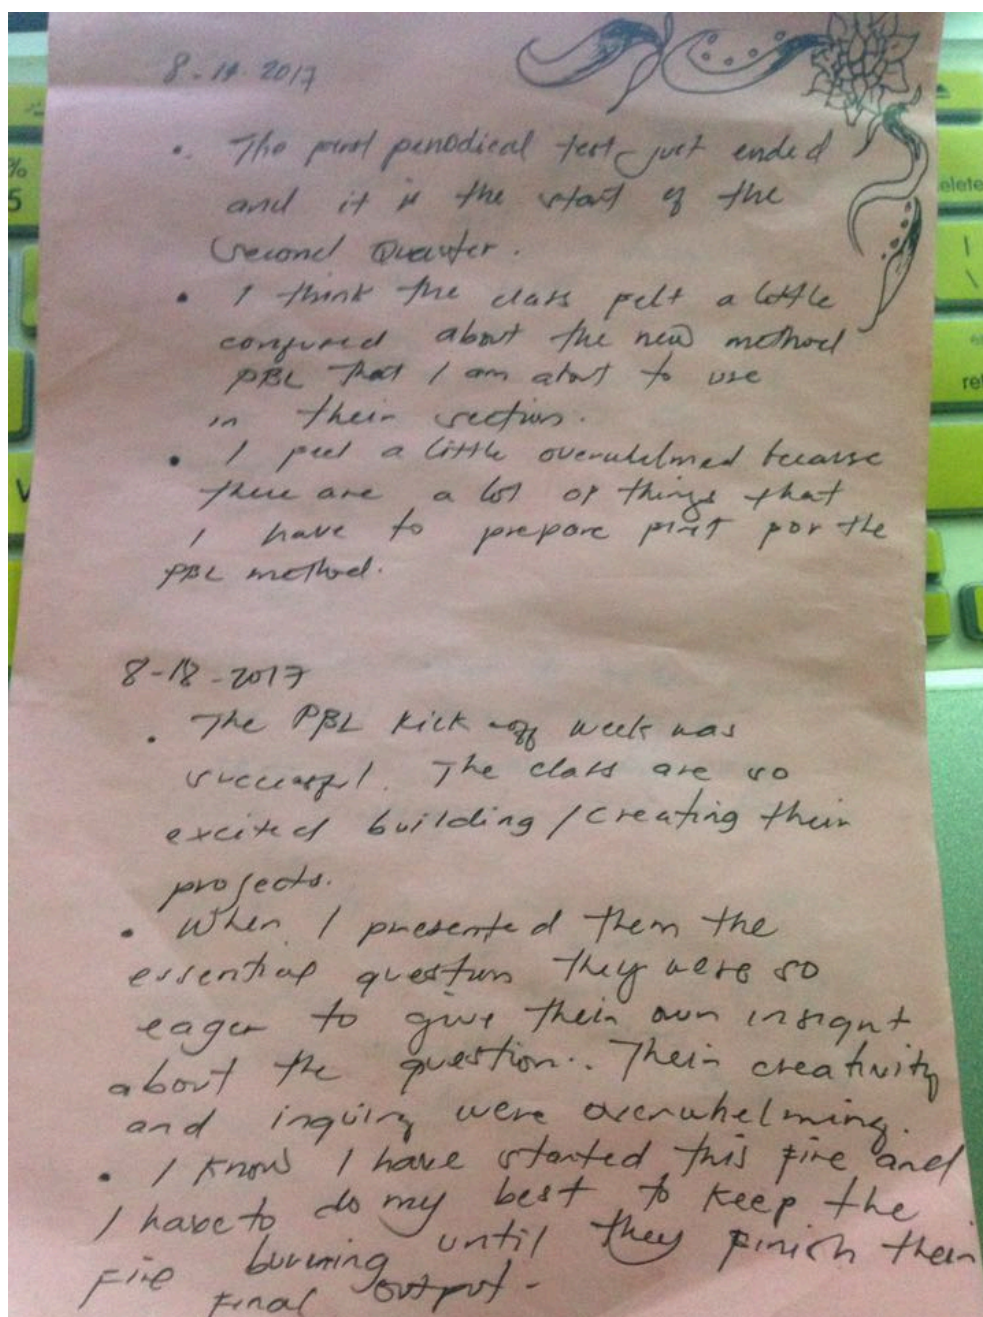 8-14-2017
• The first periodical test just ended
and it is the start of the
second Quarter.
• I think the class felt a little
confused about the new method
PBL that I am about to use
in their section.
• I feel a little overwhelmed because
there are a lot of things that
I have to prepare first for the
PBL method.
8-18-2017
• The PBL kick-off week was
successful. The class are so
excited building/creating their
projects.
• When I presented them the
essential question they were so
eager to give their own insight
about the question. Their creativity
and inquiry were overwhelming.
• I know I have started this fire and
I have to do my best to keep the
fire burning until they finish their
final output-
%
5
elete
|
\
ret